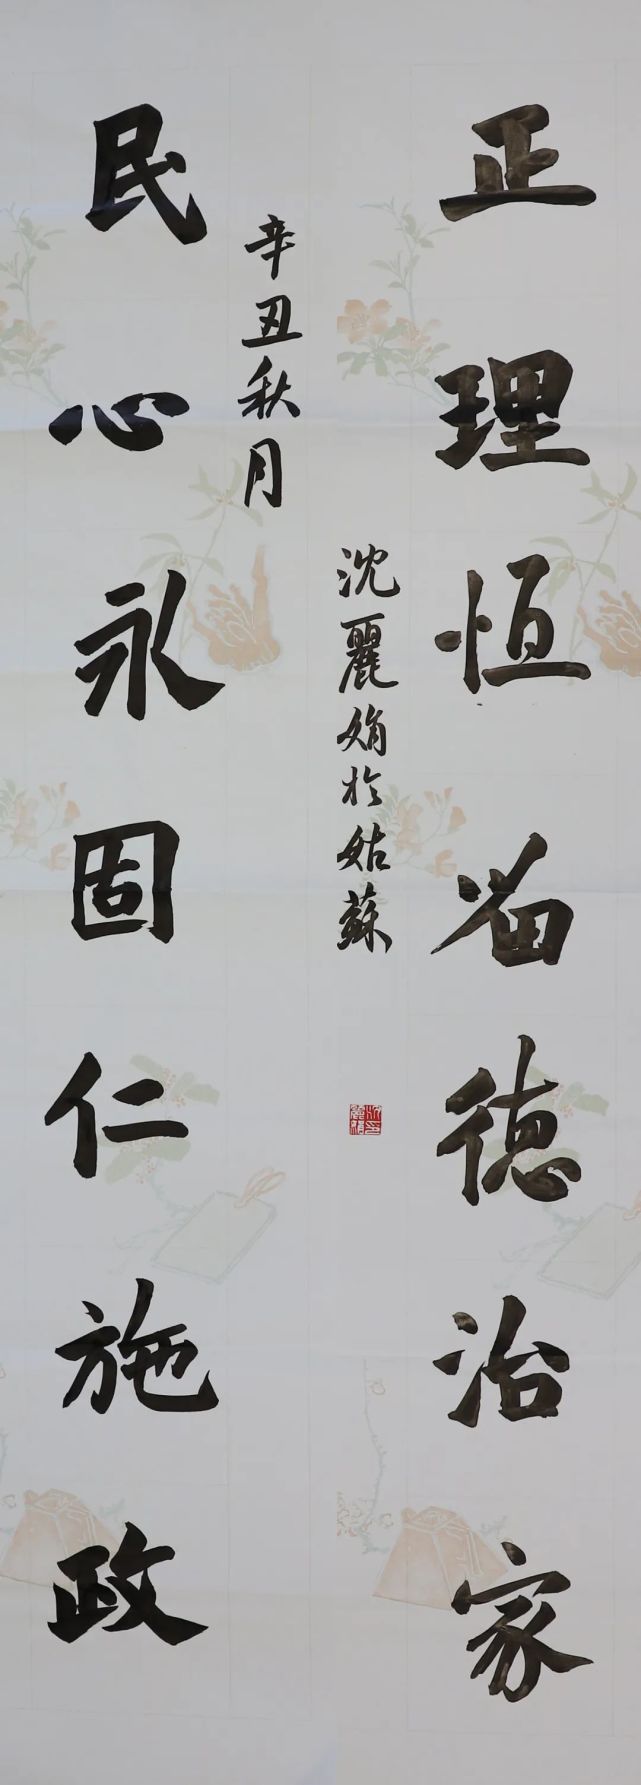 正理恒留德治家
沈麗娟於姑蘇
辛丑秋月
民心永固仁施政